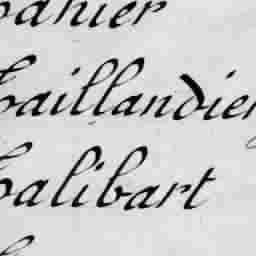 anier
Taillandier
Talibart